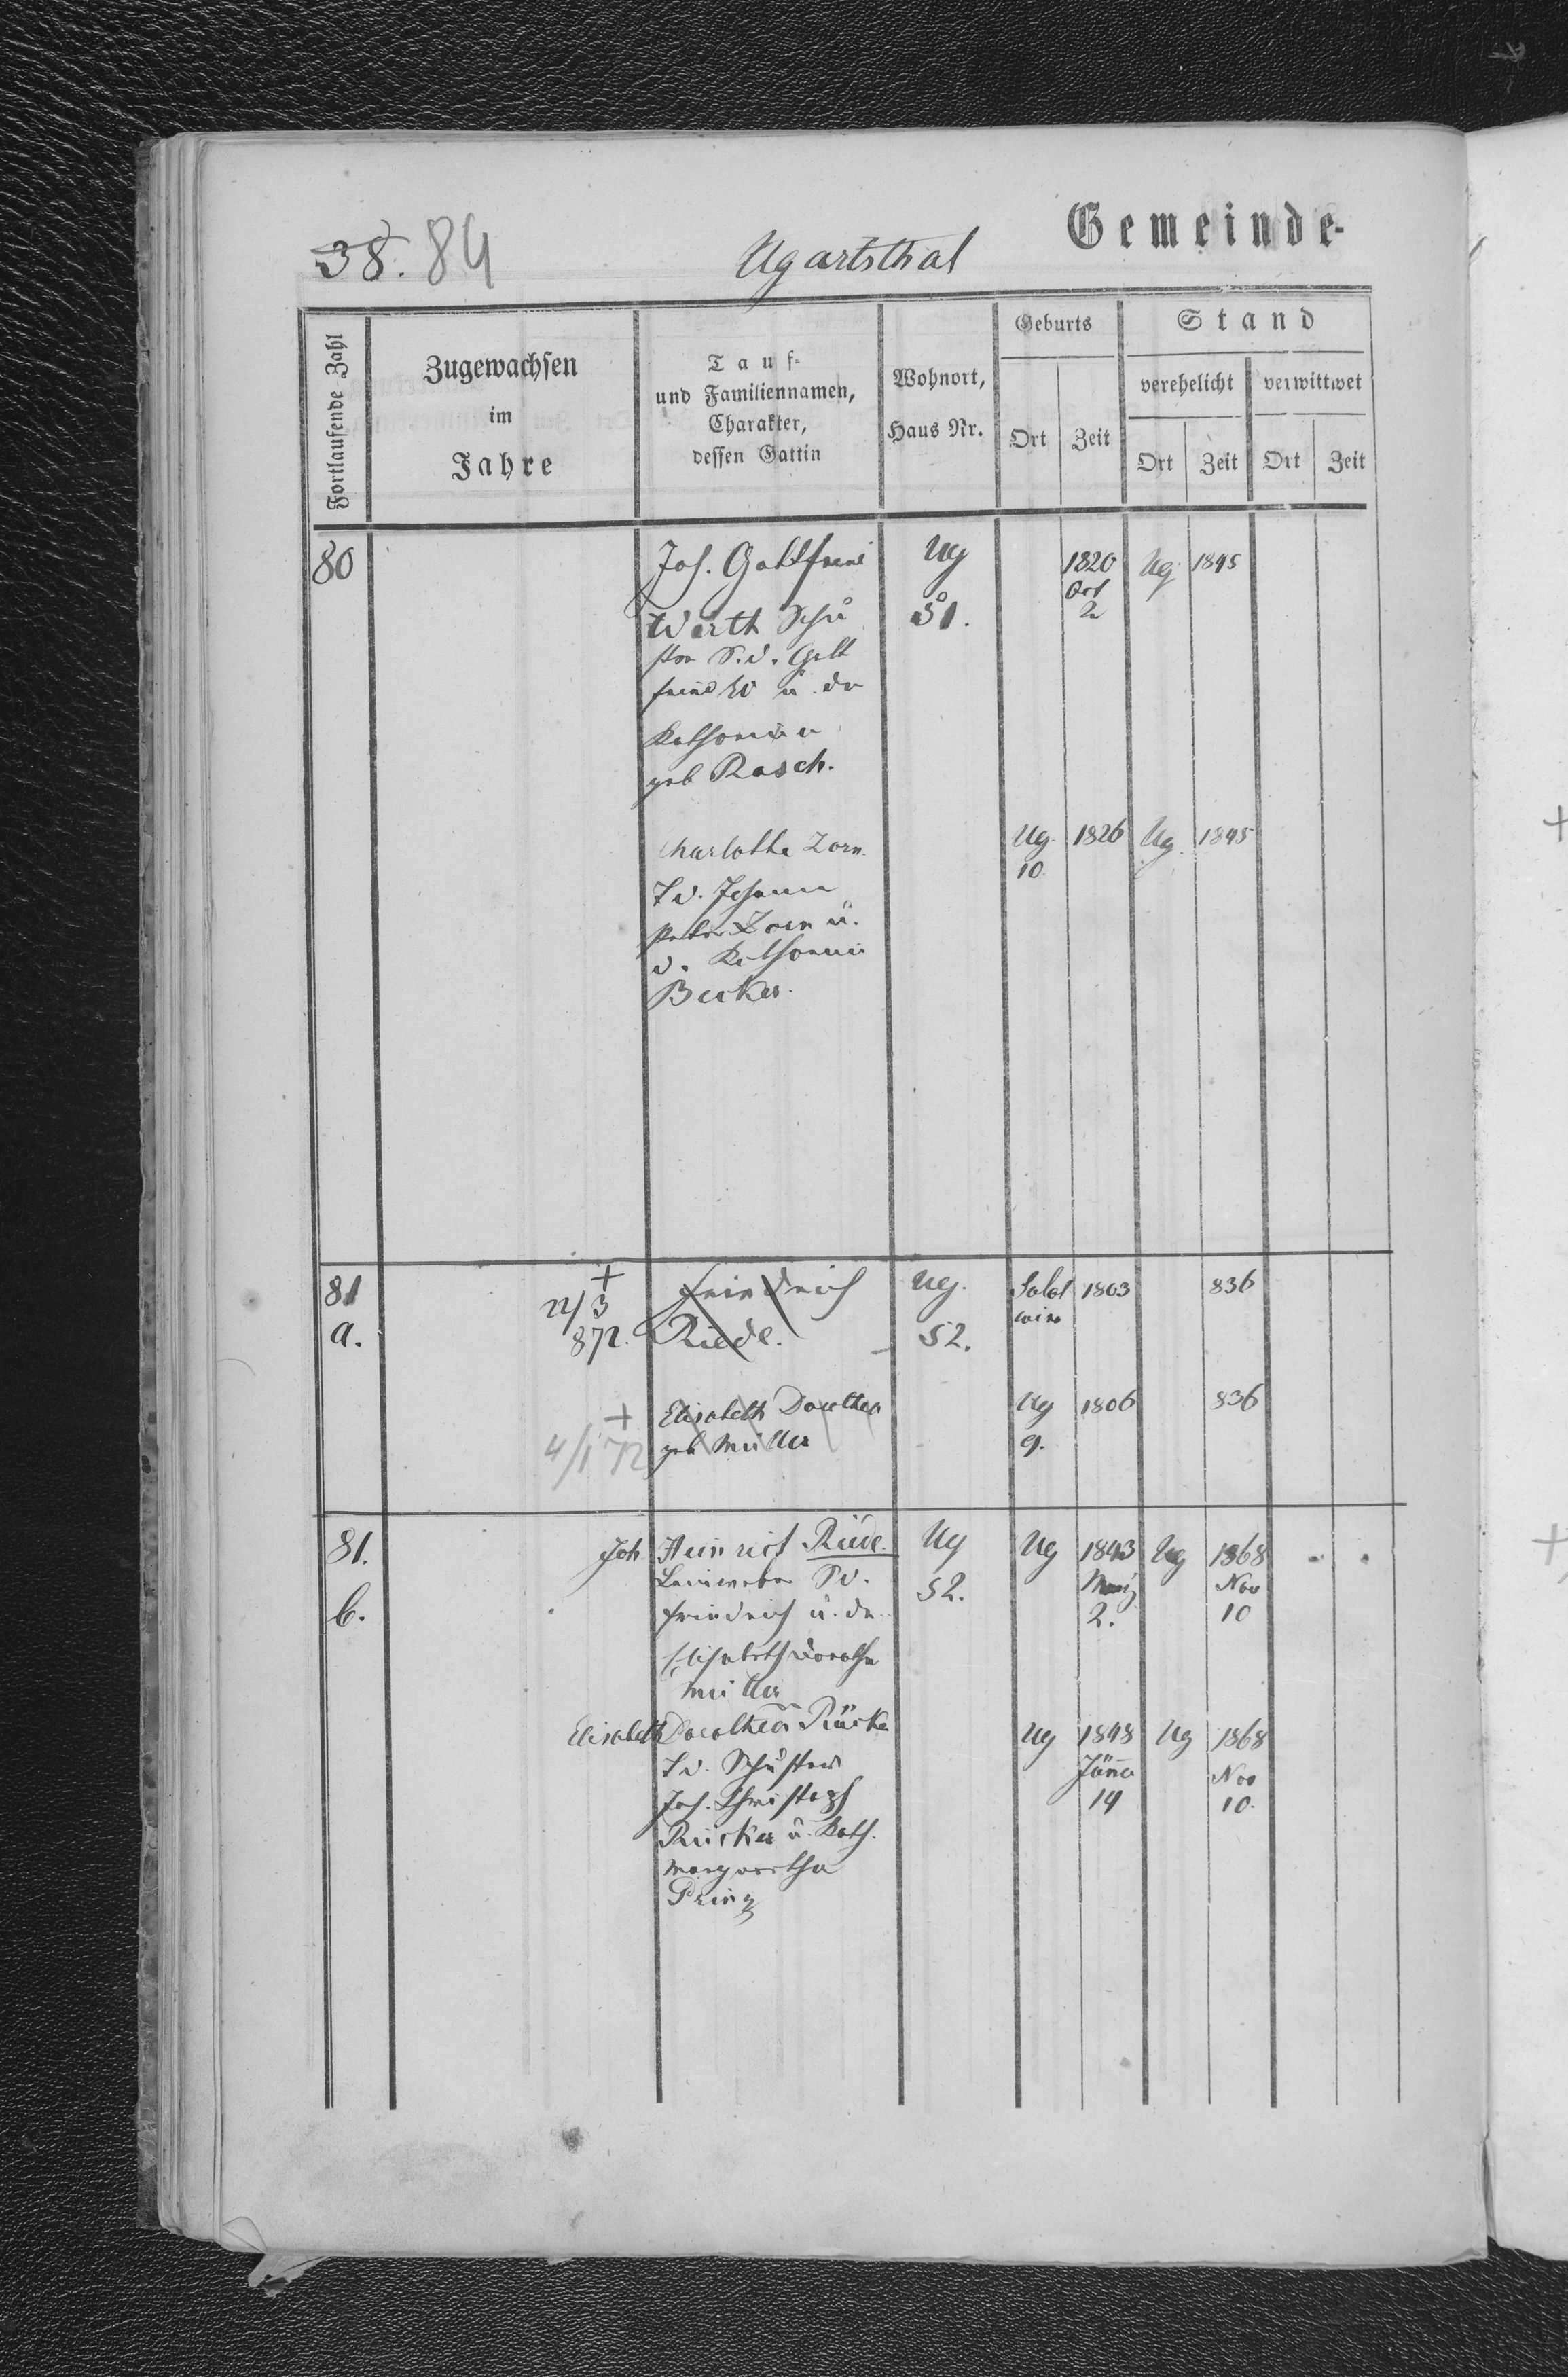 38. 84
Ugartsthal
Gemeinde-
Fortlaufende Zahl
Zugewachsen
im
Jahre
Tauf-
und Familiennamen,
Charakter,
dessen Gattin
Wohnort,
Haus Nr.
Geburts
Ort
Zeit
Stand
verehelicht
Ort
Zeit
verwittwet
Ort
Zeit
80
Joh. Gottfried
Wirth Schu
ster S. d. Gott
fried W u. der
Katharina
geb Rasch.
Ug
51.
1820
Oct
2
Ug
1845
Charlotte Zorn
T d. Johann
Peter Zorn u.
d. Katharina
Becker.
Ug.
10
1826
Ug
1845
81
a.
+
22/3
872.
Friedrich
Riede.
Ug.
52.
1803
836
+
4/1 72
Elisabeth Dorothea
geb Müller
Ug
9.
1806
836
81.
b.
Joh Heinrich Riede.
Leinweber S d.
Friedrich u. der
Elisabeth Dorothea
Müller
Ug
52.
Ug
1843
März
2.
Ug
1868
Nov
10
Elisabeth Dorothea Rücker
T d. Schusters
Joh. Christoph
Rücker u. Kath.
Margaretha
Prinz
Ug
1848
Jänner
14
Ug
1868
Nov
10.